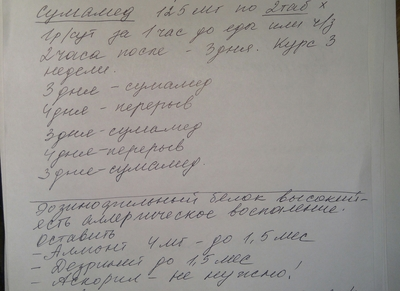 Сумамед 125 мг по 2 таб х
1р/сут за 1 час до еды или ч/з
2 часа после - 3 дня. Курс 3
недели.
3 дня - сумамед
4 дня - перерыв
3 дня - сумамед
4 дня - перерыв
3 дня - сумамед.
Эозинофильный белок высокий -
есть аллергическое воспаление.
Оставить
- Алмонт 4 мг - до 1,5 мес
- Дезринит до 1,5 мес
- Аскорил - не нужно!